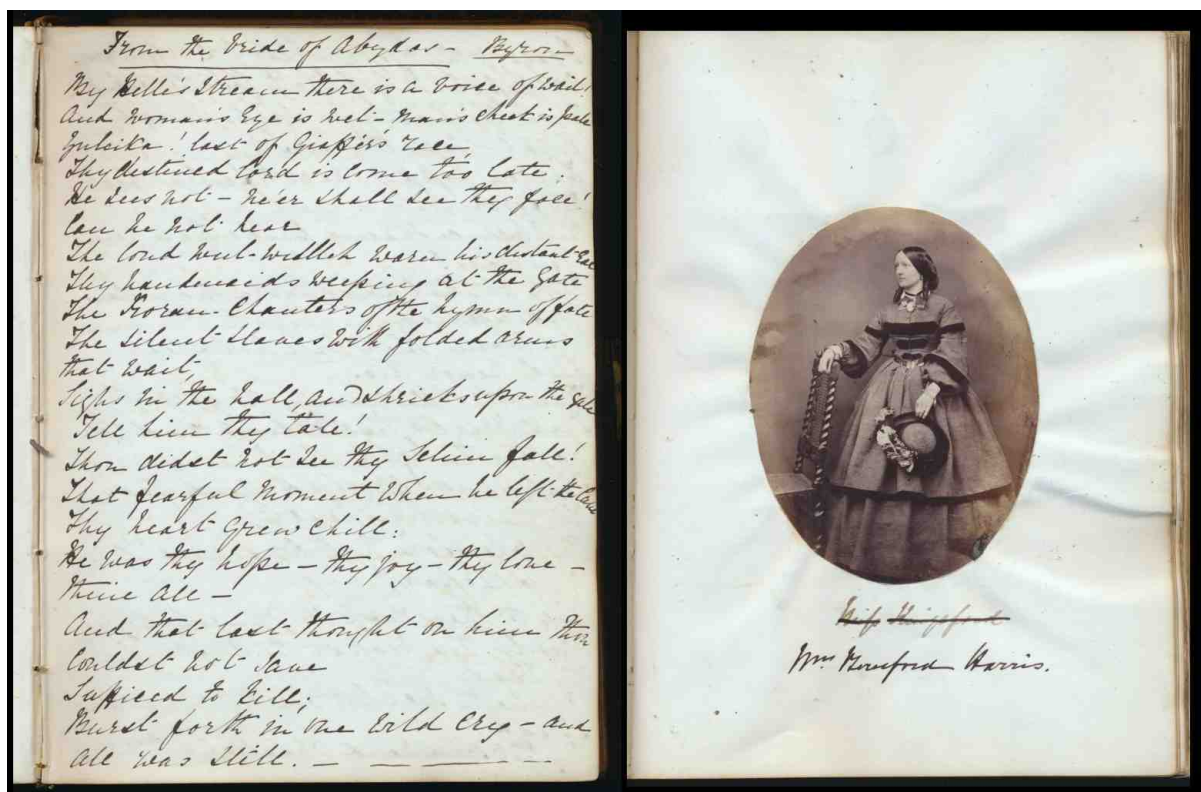 From the Bride of Abydos - Byron
By Helle's Stream there is a voice of wail!
And woman's Eye is wet - man's cheek is pale
Zuleika! last of Giaffir's race
Thy destined lord is come too late.
He sees not - ne'er shall see thy face!
Can he not hear
The loud wul-wulleh warn his distant Ear
Thy handmaids weeping at the Gate
The Koran-Chanters of the hymn of fate
The silent slaves with folded arms
that wait,
Sighs in the hall, and shrieks upon the gale
Tell him thy tale!
Thou didst not see thy Selim fall!
That fearful moment when he left the Cave
Thy heart grew chill:
He was thy hope - thy joy - thy love -
thine all -
And that last thought on him Thou
Couldst not save
Sufficed to kill;
Burst forth in one wild cry - and
all was still. -
Miss Kingsford
Mrs Beresford Harris.